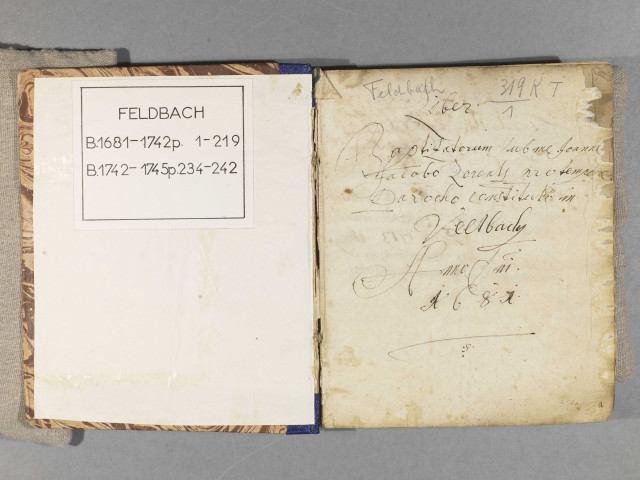 FELDBACH
B.1681-1742p. 1-219
B.1742-1745p.234-242
Feldbach 319 K T
1
Liber
Baptizatorum ab me Joanne
Jacobo protempore
Parocho constituto in
Veltbach
Anno Dni.
1681.